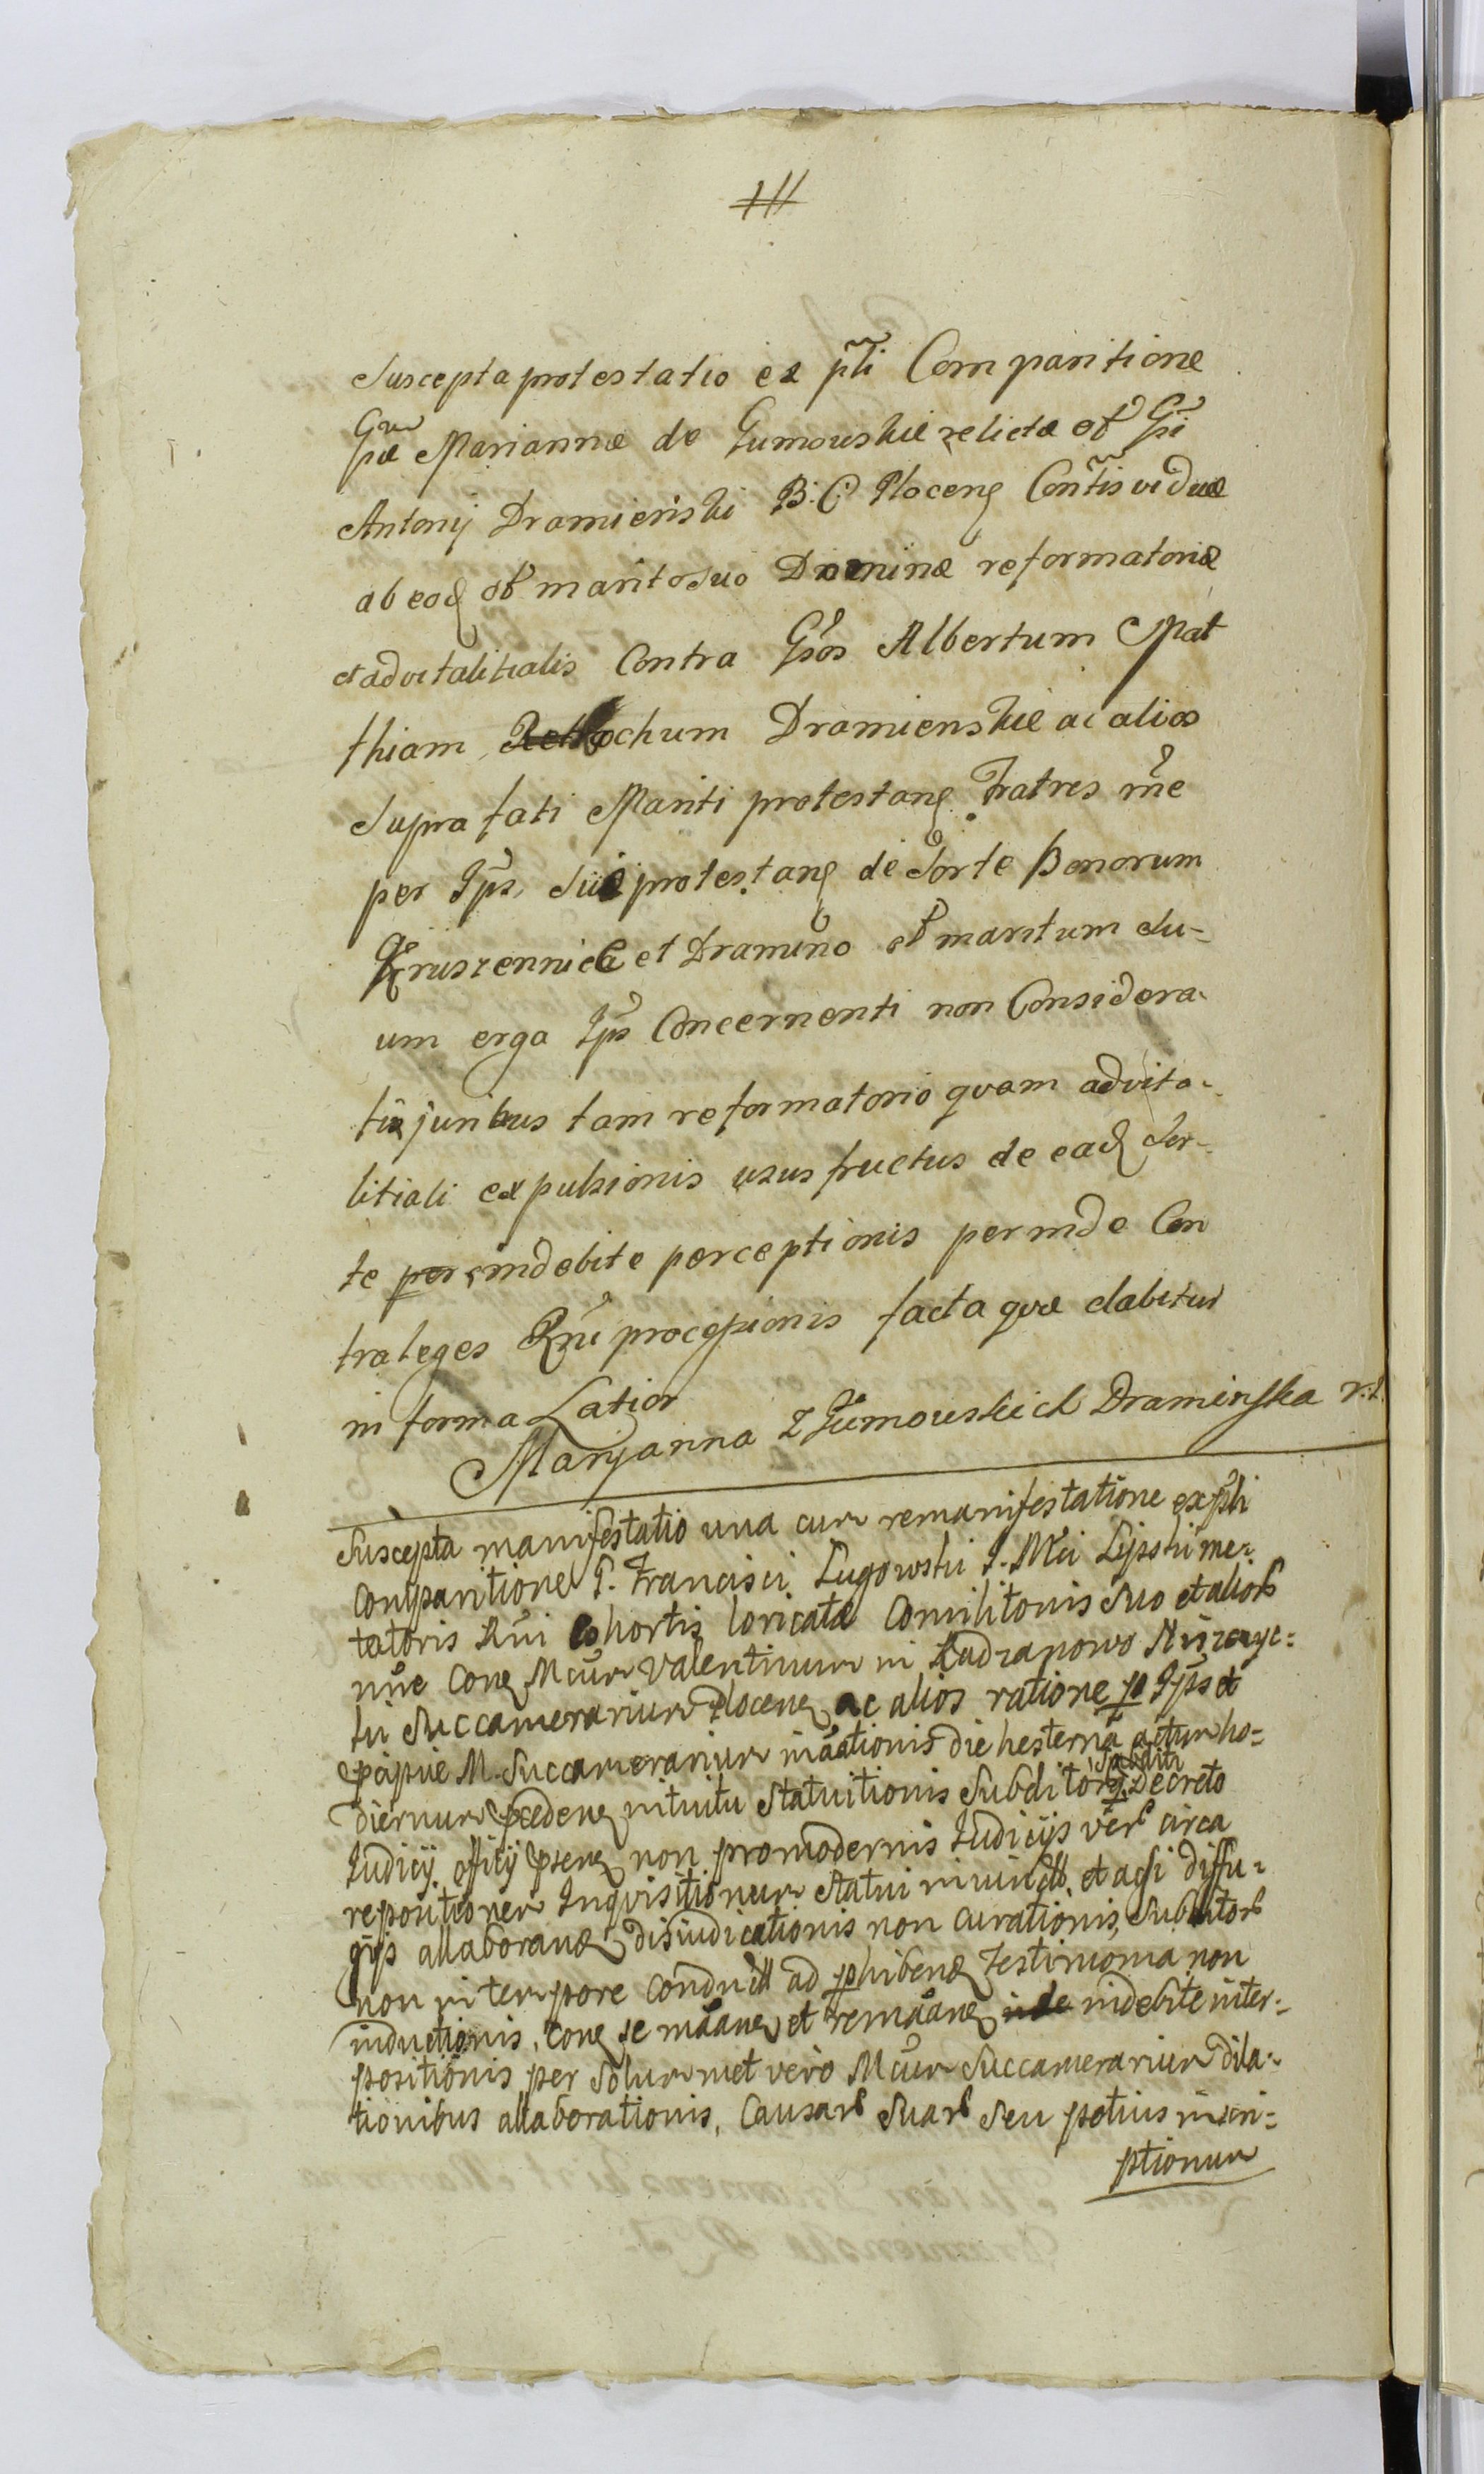 Suscepta protestatio ex pñti Comparitione
Gñæ Mariannæ de Gumowskie relictæ ol Gñi
Antonij Dramieński B. C. Plocen Contis viduæ
ab eod ol marito suo Dominæ reformatoriæ
et advitalitialis Contra Gsos Albertum Mat
thiam, Rochum Dramienskie ac alios
supra fati Mariti protestan Fratres rñe
per Ips, suæ protestan de sorte Bonorum
Kruszennica et Dramino ol maritum Su-
um erga Ips Concernenti non Considera-
tis juribus tam reformatorio quam advita-
litiali expulsionis usus fructus de ead Sor-
te per indebite perceptionis perinde Con
tra leges Rñi processionis facta quæ dabitur
in forma Latior
Maryanna z Gumowskich Dramińska v.s.
Suscepta manifestatio una cum remanifestatione ex pñti
Comparitione G. Francisci Lugowski S. Mci Lipski me-
tatoris Rñi Cohortis loricatæ Comilitonis Suo et alior
nñe Con Mcum Valentinum in Radzanowo Niszczyc-
ki Succamerarium Plocen ac alios ratione p Ips et
pcipue M. Succamerarium mãationis die hesterna actum ho-
diernum pceden intuitu Statuitionis Subditor Subditi Decreto
Judicij officij psen non pro modernis Judicijs ver circa
repositionem Inquisitionum Statui et acsi diffu-
gijs allaboran disiudicationis non Curationis, Subditor
non in tempore ad phiben Testimonia non
inductionis, Con se mãan et remãan inde indebite inter-
positionis per Solummet vero Mcum Succamerarium dila-
tionibus allaborationis, Causar Suar Seu potius inscri-
ptionum